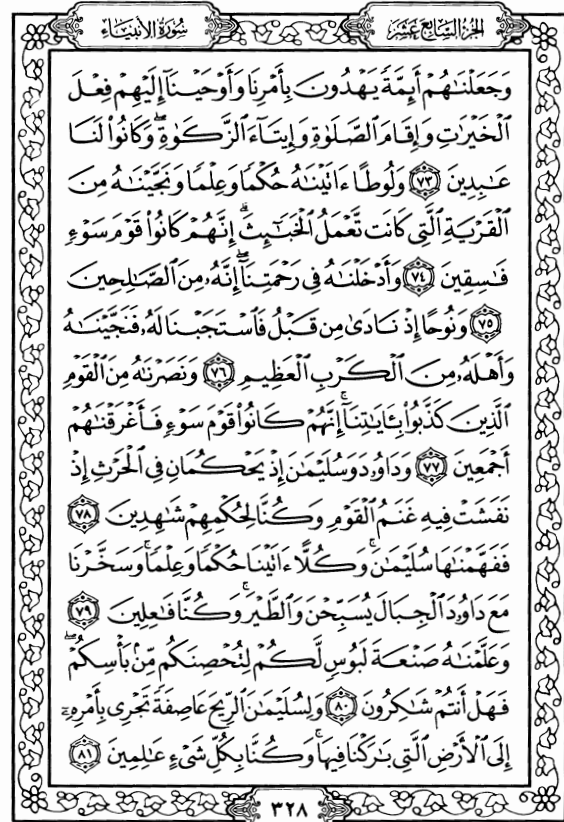 الجزء السابع عشر سورة الأنبياء
وَجَعَلْنَٰهُمْ أَئِمَّةً يَهْدُونَ بِأَمْرِنَا وَأَوْحَيْنَآ إِلَيْهِمْ فِعْلَ
ٱلْخَيْرَٰتِ وَإِقَامَ ٱلصَّلَوٰةِ وَإِيتَآءَ ٱلزَّكَوٰةِ ۖ وَكَانُوا۟ لَنَا
عَٰبِدِينَ ٧٣ وَلُوطًا ءَاتَيْنَٰهُ حُكْمًا وَعِلْمًا وَنَجَّيْنَٰهُ مِنَ
ٱلْقَرْيَةِ ٱلَّتِى كَانَت تَّعْمَلُ ٱلْخَبَٰٓئِثَ ۗ إِنَّهُمْ كَانُوا۟ قَوْمَ سَوْءٍ
فَٰسِقِينَ ٧٤ وَأَدْخَلْنَٰهُ فِى رَحْمَتِنَآ ۖ إِنَّهُۥ مِنَ ٱلصَّٰلِحِينَ
٧٥ وَنُوحًا إِذْ نَادَىٰ مِن قَبْلُ فَٱسْتَجَبْنَا لَهُۥ فَنَجَّيْنَٰهُ
وَأَهْلَهُۥ مِنَ ٱلْكَرْبِ ٱلْعَظِيمِ ٧٦ وَنَصَرْنَٰهُ مِنَ ٱلْقَوْمِ
ٱلَّذِينَ كَذَّبُوا۟ بِـَٔايَٰتِنَآ ۚ إِنَّهُمْ كَانُوا۟ قَوْمَ سَوْءٍ فَأَغْرَقْنَٰهُمْ
أَجْمَعِينَ ٧٧ وَدَاوُۥدَ وَسُلَيْمَٰنَ إِذْ يَحْكُمَانِ فِى ٱلْحَرْثِ إِذْ
نَفَشَتْ فِيهِ غَنَمُ ٱلْقَوْمِ وَكُنَّا لِحُكْمِهِمْ شَٰهِدِينَ ٧٨
فَفَهَّمْنَٰهَا سُلَيْمَٰنَ ۚ وَكُلًّا ءَاتَيْنَا حُكْمًا وَعِلْمًا ۚ وَسَخَّرْنَا
مَعَ دَاوُۥدَ ٱلْجِبَالَ يُسَبِّحْنَ وَٱلطَّيْرَ ۚ وَكُنَّا فَٰعِلِينَ ٧٩
وَعَلَّمْنَٰهُ صَنْعَةَ لَبُوسٍ لَّكُمْ لِتُحْصِنَكُم مِّنۢ بَأْسِكُمْ ۖ
فَهَلْ أَنتُمْ شَٰكِرُونَ ٨٠ وَلِسُلَيْمَٰنَ ٱلرِّيحَ عَاصِفَةً تَجْرِى بِأَمْرِهِۦٓ
إِلَى ٱلْأَرْضِ ٱلَّتِى بَٰرَكْنَا فِيهَا ۚ وَكُنَّا بِكُلِّ شَىْءٍ عَٰلِمِينَ ٨١
٣٢٨